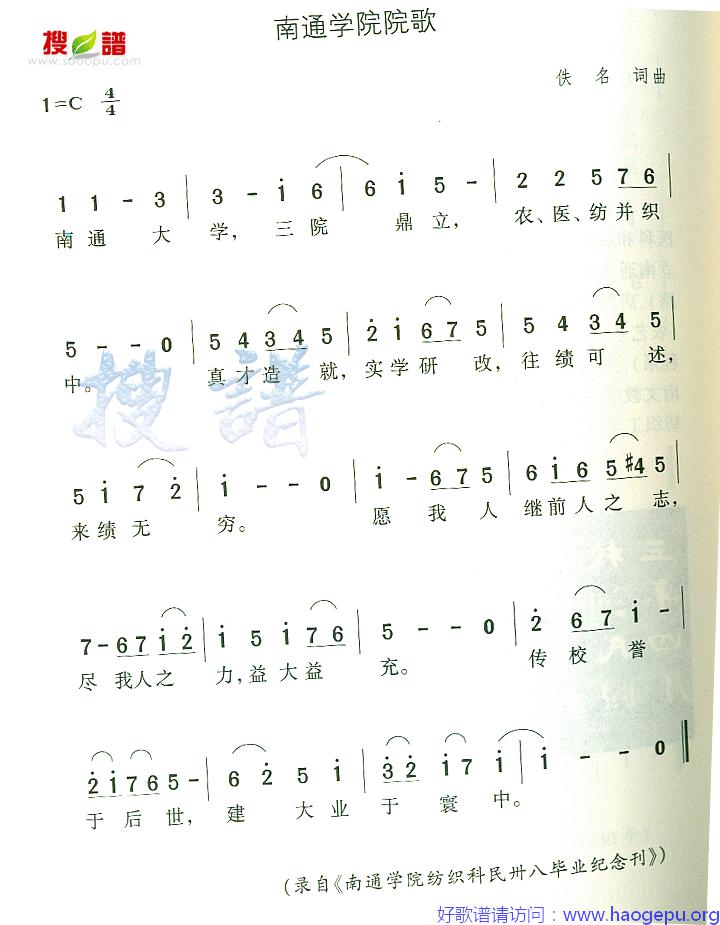 南通学院院歌
搜谱
www.sooopu.com
佚 名 词曲
1=C 4/4
1 1 - 3 | 3 - i 6 | 6 i 5 - | 2 2 5 7 6 |
南 通 大 学, 三 院 鼎 立, 农、医、纺 并 织
5 - - 0 | 5 4 3 4 5 | 2̇ i 6 7 5 | 5 4 3 4 5 |
中。 真 才 造 就, 实 学 研 改, 往 绩 可 述,
搜譜
5 i 7 2̇ | i - - 0 | i - 6 7 5 | 6 i 6 5 #4 5 |
来 绩 无 穷。 愿 我 人 继 前 人 之 志,
7 - 6 7 i 2̇ | i 5 i 7 6 | 5 - - 0 | 2̇ 6 7 i - |
尽 我 人 之 力, 益 大 益 充。 传 校 誉
2̇ i 7 6 5 - | 6 2̇ 5 i | 3̇ 2̇ i 7 i | i - - 0 ‖
于 后 世, 建 大 业 于 寰 中。
(录自《南通学院纺织科民卅八毕业纪念刊》)
好歌谱请访问：www.haogepu.org